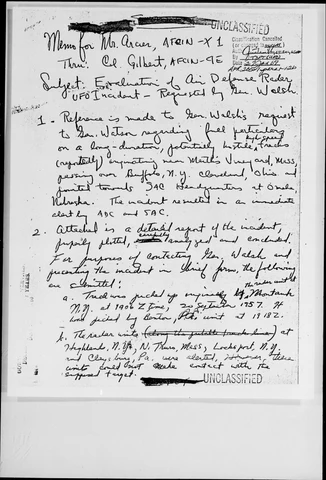 UNCLASSIFIED
Memo for Mr. Arcier, AFCIN-X1
Thru: Col. Gilbert, AFCIN-4E
Subject: Evaluation of Air Defense Radar
UFO Incident - Requested by Gen. Welsh
1. Reference is made to Gen. Welsh's request
to Gen. Watson regarding full particulars
on a long-duration, potentially hostile, high speed tracks
(reportedly) originating near Martha's Vineyard, Mass,
passing over Buffalo, N.Y. Cleveland, Ohio and
pointed towards SAC Headquarters at Omaha,
Nebraska. The incident resulted in an immediate
alert by ADC and SAC.
2. Attached is a detailed report of the incident,
properly plotted, carefully analyzed and evaluated.
For purposes of contacting Gen. Walsh and
presenting the incident in brief form, the following
are submitted:
a. Track was picked up originally by the radar unit at Montauk
N.Y. at 1906 Z time, 20 September 1957. It
was picked by Benton, Pa. unit at 1918Z.
b. The radar units (along the path) at
Highlands, N.Y., N. Truro, Mass, Lockport, N.Y.
and Claysburg, Pa. were alerted, However, these
units could not make contact with the
supposed target.
UNCLASSIFIED